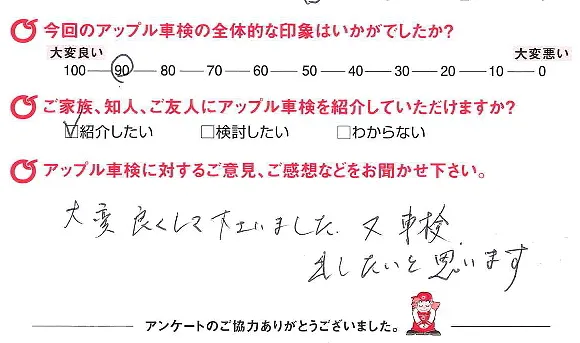 今回のアップル車検の全体的な印象はいかがでしたか?
大変良い 大変悪い
100 90 80 70 60 50 40 30 20 10 0
ご家族、知人、ご友人にアップル車検を紹介していただけますか?
☑紹介したい □検討したい □わからない
アップル車検に対するご意見、ご感想などをお聞かせ下さい。
大変良くして下さいました。又車検
出したいと思います
アンケートのご協力ありがとうございました。